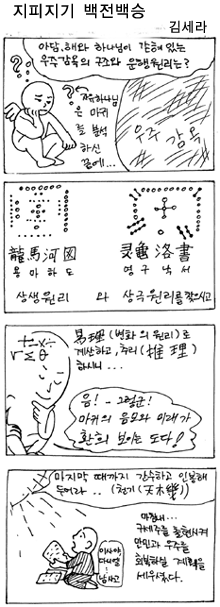 지피지기 백전백승
김세라
아담, 해와 하나님이 갇혀있는
우주감옥의 구조와 운행원리는?
하나님
은 마귀
를 분석
하신
끝에...
우주 감옥
龍馬河図
灵龜洛書
용마하도
영구낙서
상생원리 와 상극원리를 짝으시고
易理 (변화의 원리)로
계산하고, 추리(推理)
하시니...
음! - 그렇군!
마귀의 음모와 미래가
환히 보이는도다!
마지막 때까지 간수하고 인봉해
두어라.. (천기(天機))
마침내...
구세주를 출현시켜
만민과 우주를
회복하실 계획을
세우셨다.
이사야
다니엘
남사고